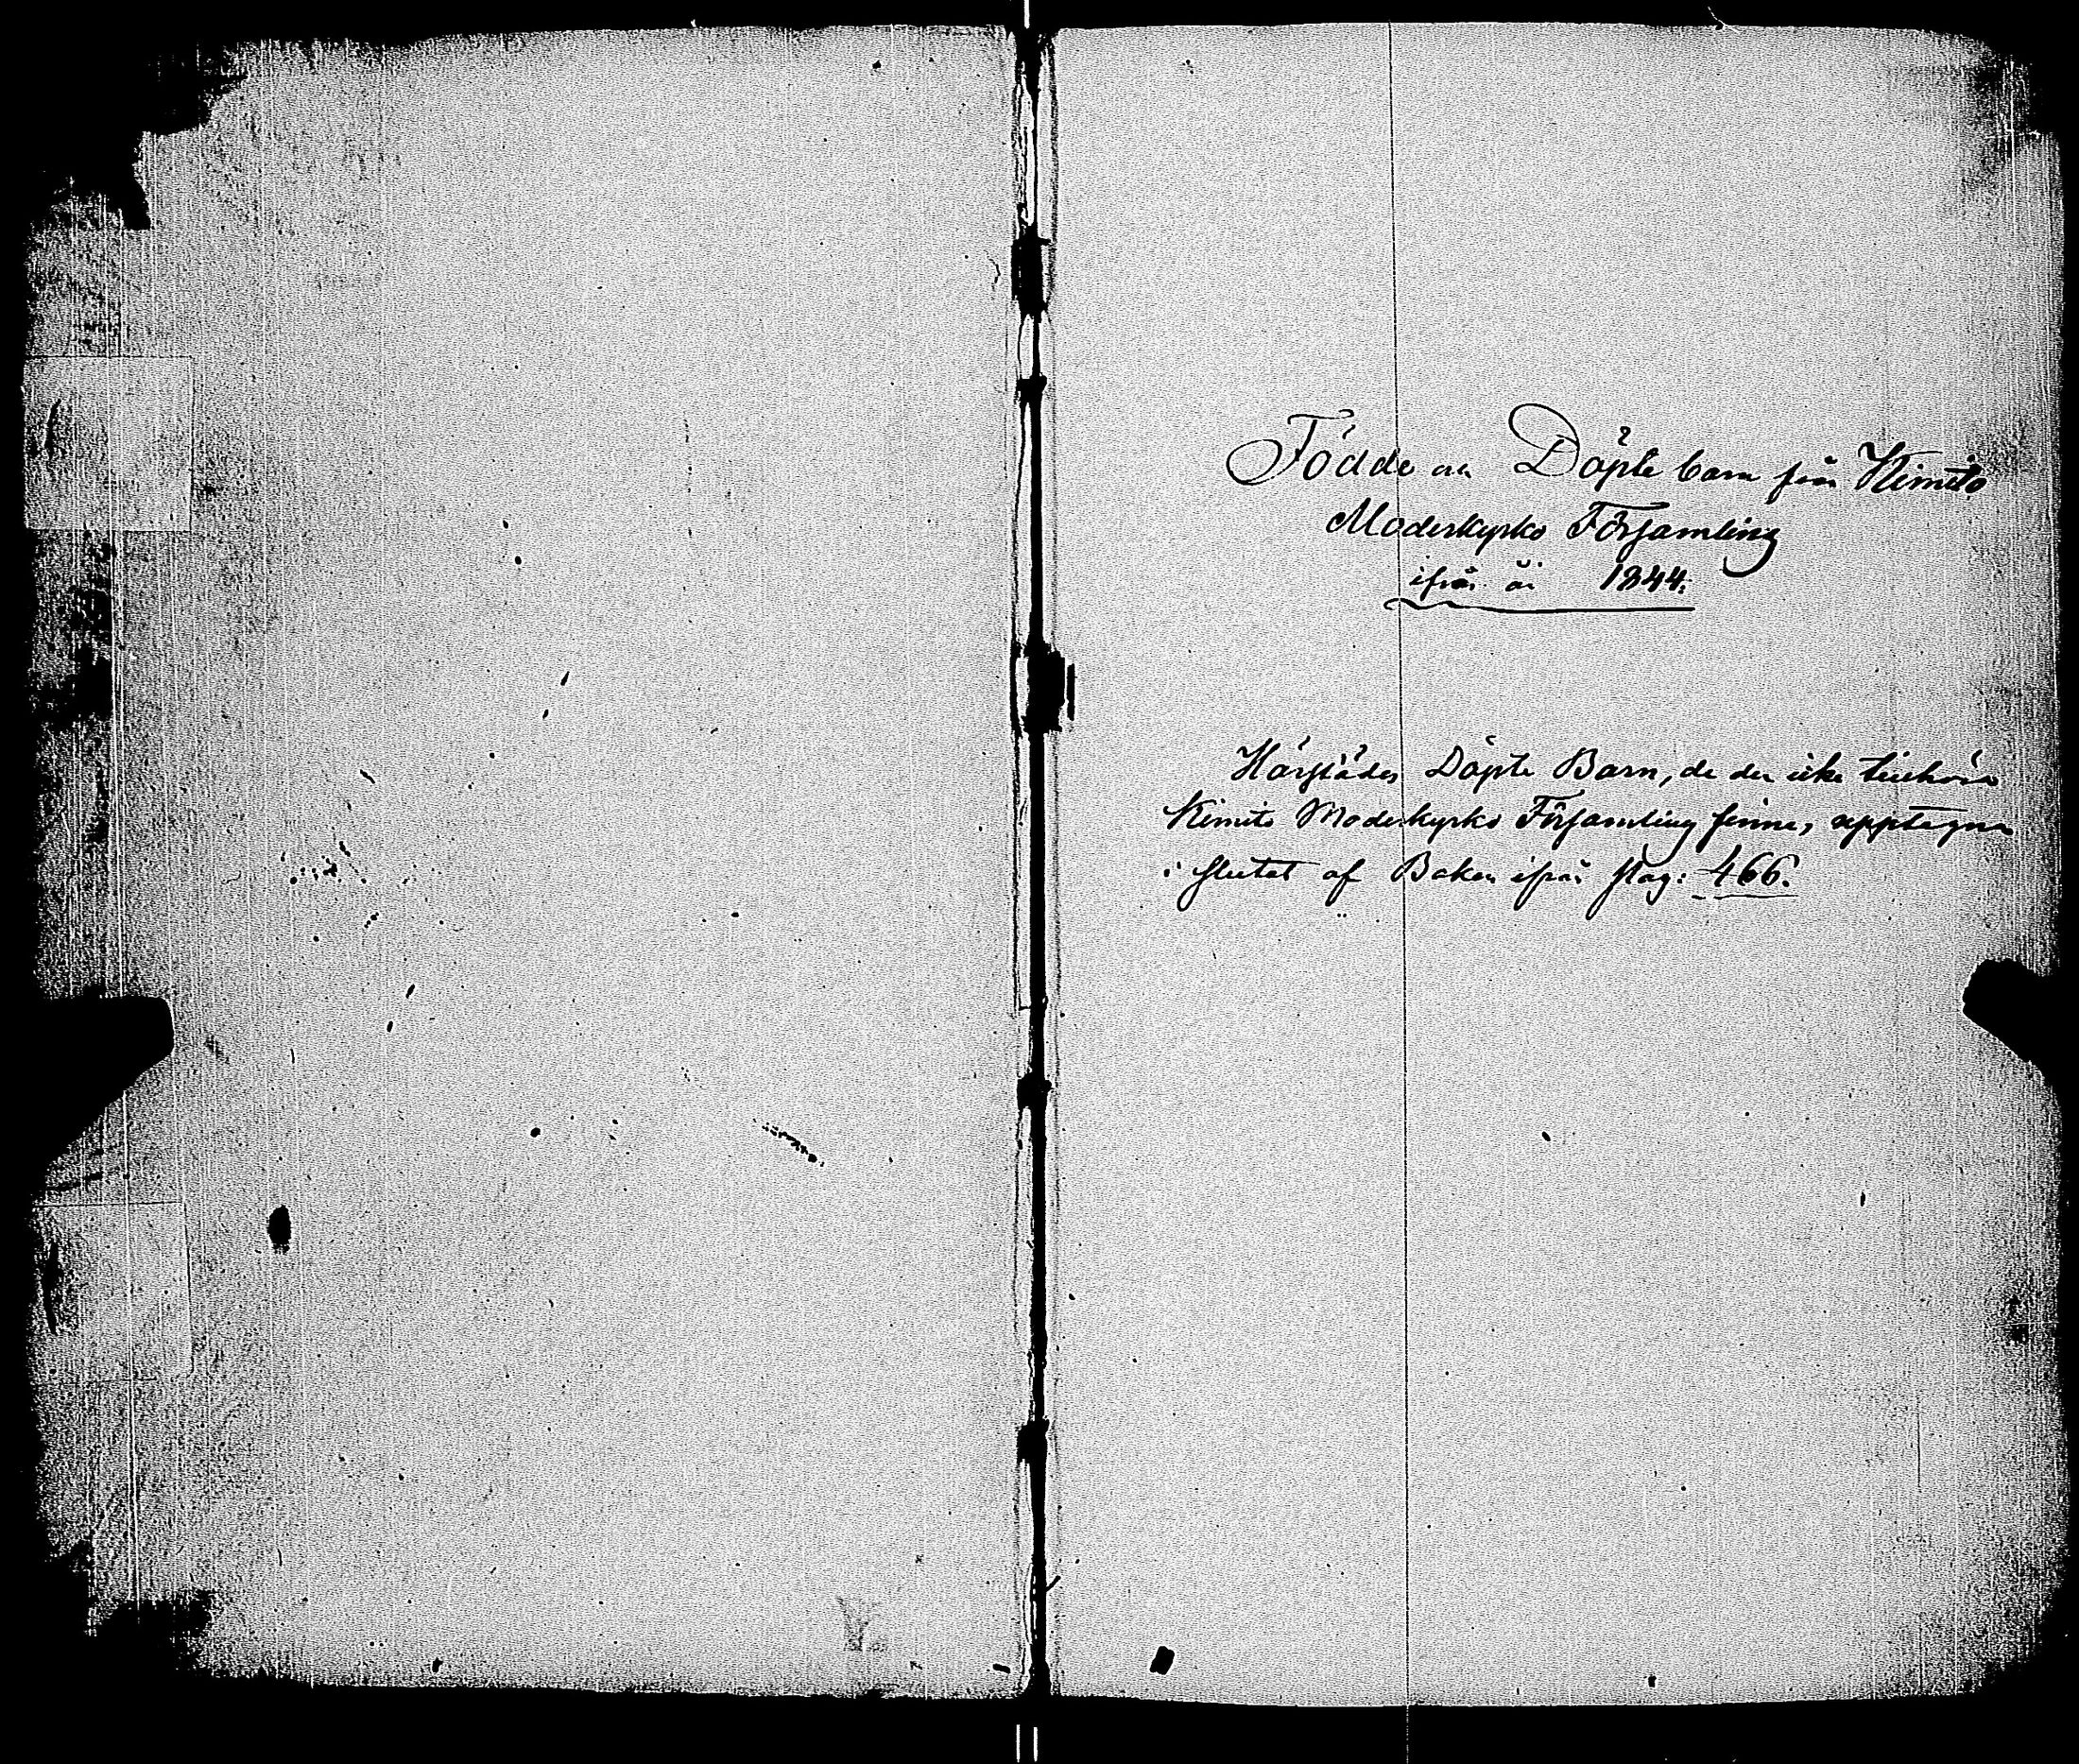 Födde och Döpte barn från Kimito
Moderkyrko Församling
ifrån år 1844.
Härstädes Döpte Barn, de der icke tillhöra
Kimito Moderkyrko Församling finnas upptagna
i slutet af Boken ifrån pag: 466.